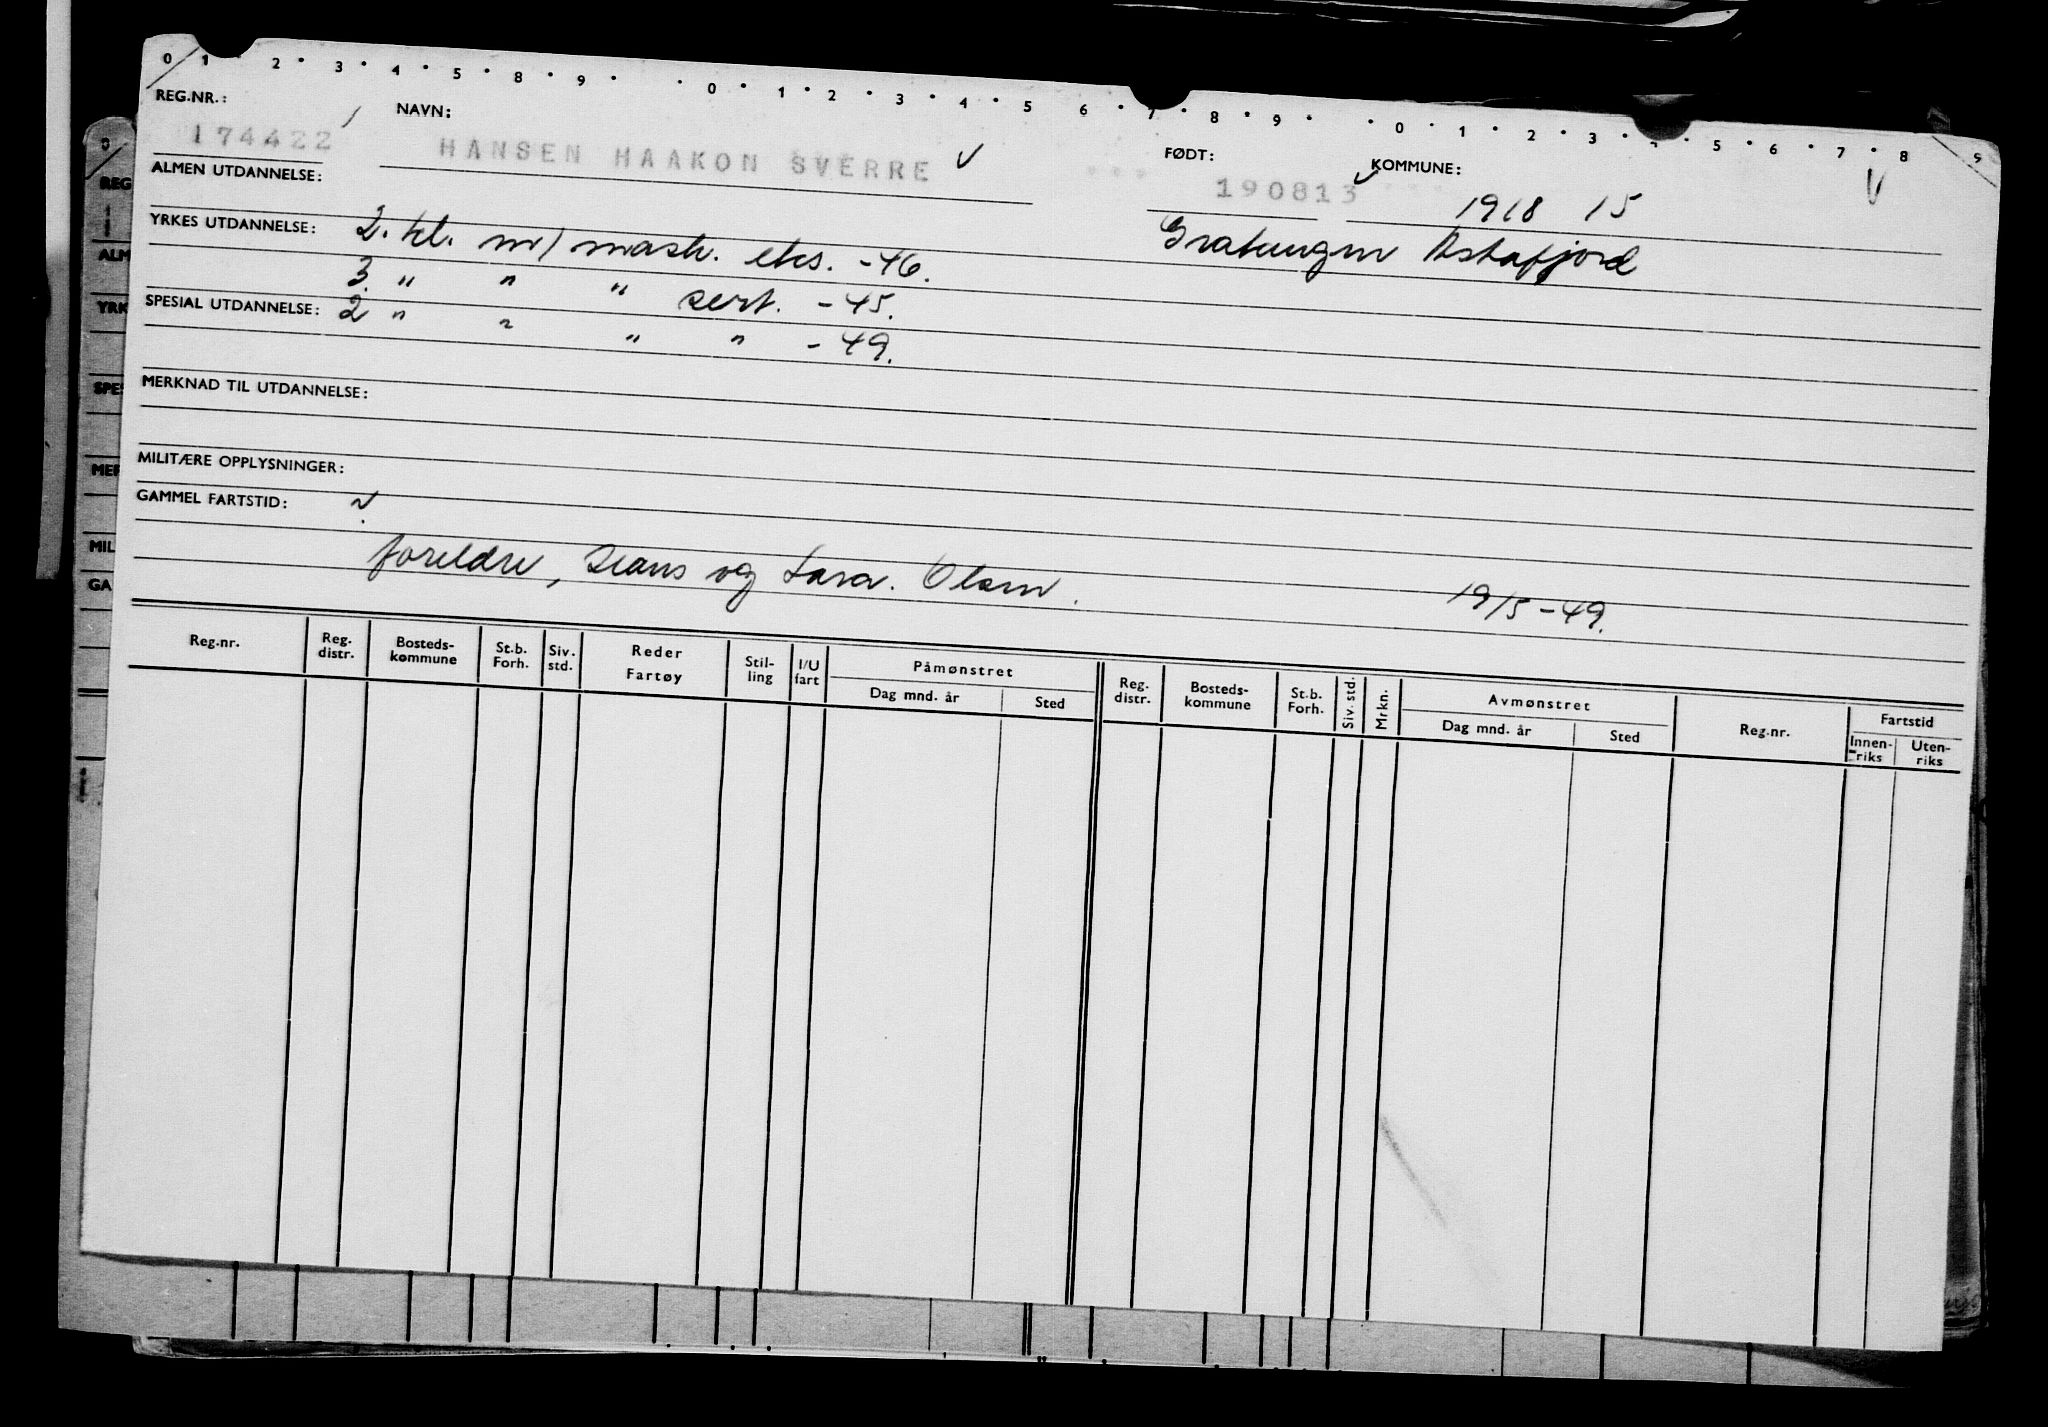 0 1 2 3 4 5 8 9 0 1 2 3 4 5 6 7 8 9 0 1 2 3 5 6 7 8 9
REG.NR.: NAVN: FØDT: KOMMUNE:
174422 HANSEN HAAKON SVERRE 190813 1918 15
ALMEN UTDANNELSE:
YRKES UTDANNELSE: 2. kl. m/ mask. eks. -46. Gratangen Astafjord
3. " " " sert. -45.
SPESIAL UTDANNELSE: 2 " " " " -49.
MERKNAD TIL UTDANNELSE:
MILITÆRE OPPLYSNINGER:
GAMMEL FARTSTID:
foreldre, Hans og Lara. Olsen. 19/5-49.
Reg.nr. Reg. distr. Bosteds- kommune St.b. Forh. Siv. std. Reder Fartøy Stil- ling I/U fart Påmønstret Reg. distr. Bosteds- kommune St.b. Forh. Siv. std. Mrkn. Avmønstret Reg.nr. Fartstid
Dag mnd. år Sted Dag mnd. år Sted Innen- riks Uten- riks